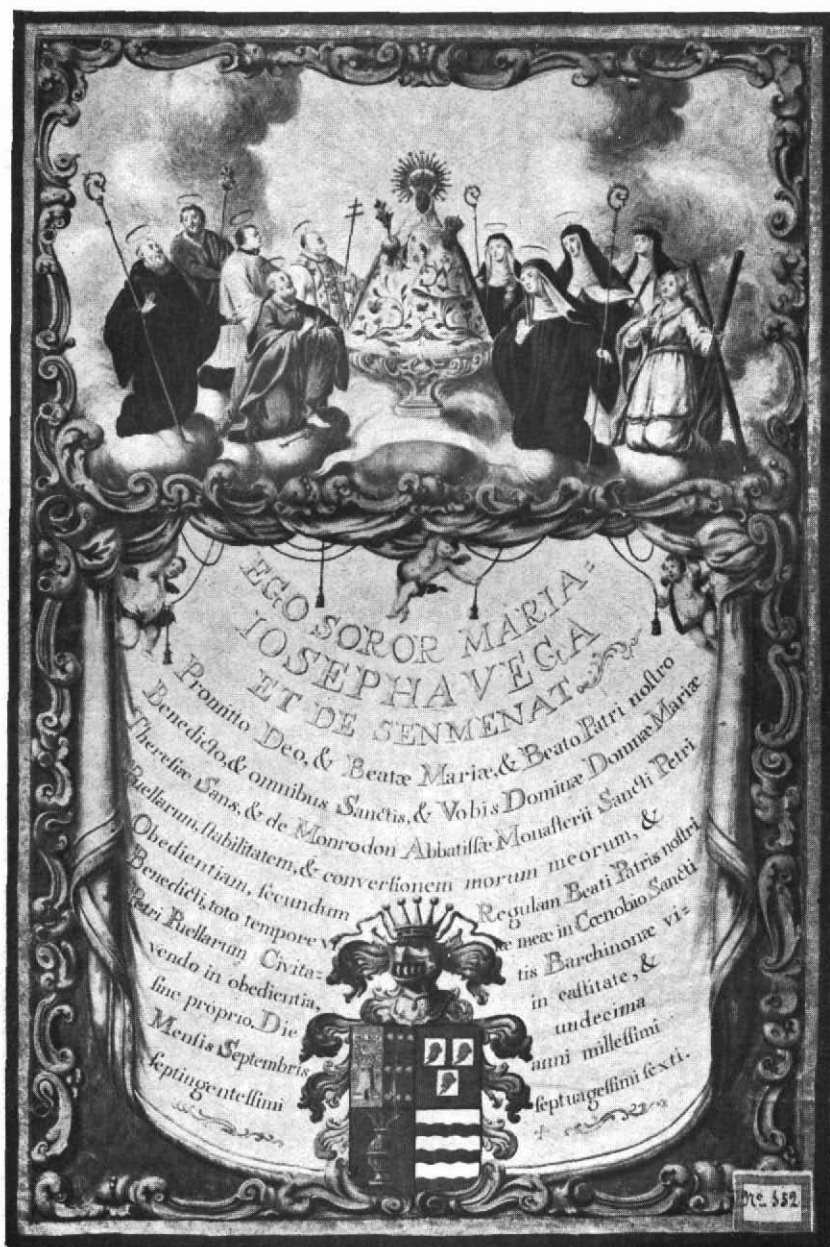 EGO SOROR MARIA=
IOSEPHA VEGA
ET DE SENMENAT
Promitto Deo, & Beatæ Mariæ, & Beato Patri noſtro
Benedicto, & omnibus Sanctis, & Vobis Dominæ Domnæ Mariæ
Thereſiæ Sans, & de Monrodon Abbatiſſæ Monaſterii Sancti Petri
Puellarum, ſtabilitatem, & converſionem morum meorum, &
Obedientiam, ſecundum Regulam Beati Patris noſtri
Benedicti, toto tempore vi æ meæ in Cœnobio Sancti
Petri Puellarum Civita= tis Barchinonæ vi=
vendo in obedientia, in caſtitate, &
ſine proprio. Die undecima
Menſis Septembris anni milleſſimi
ſeptingenteſſimi ſeptuageſſimi ſexti.
Nº 552